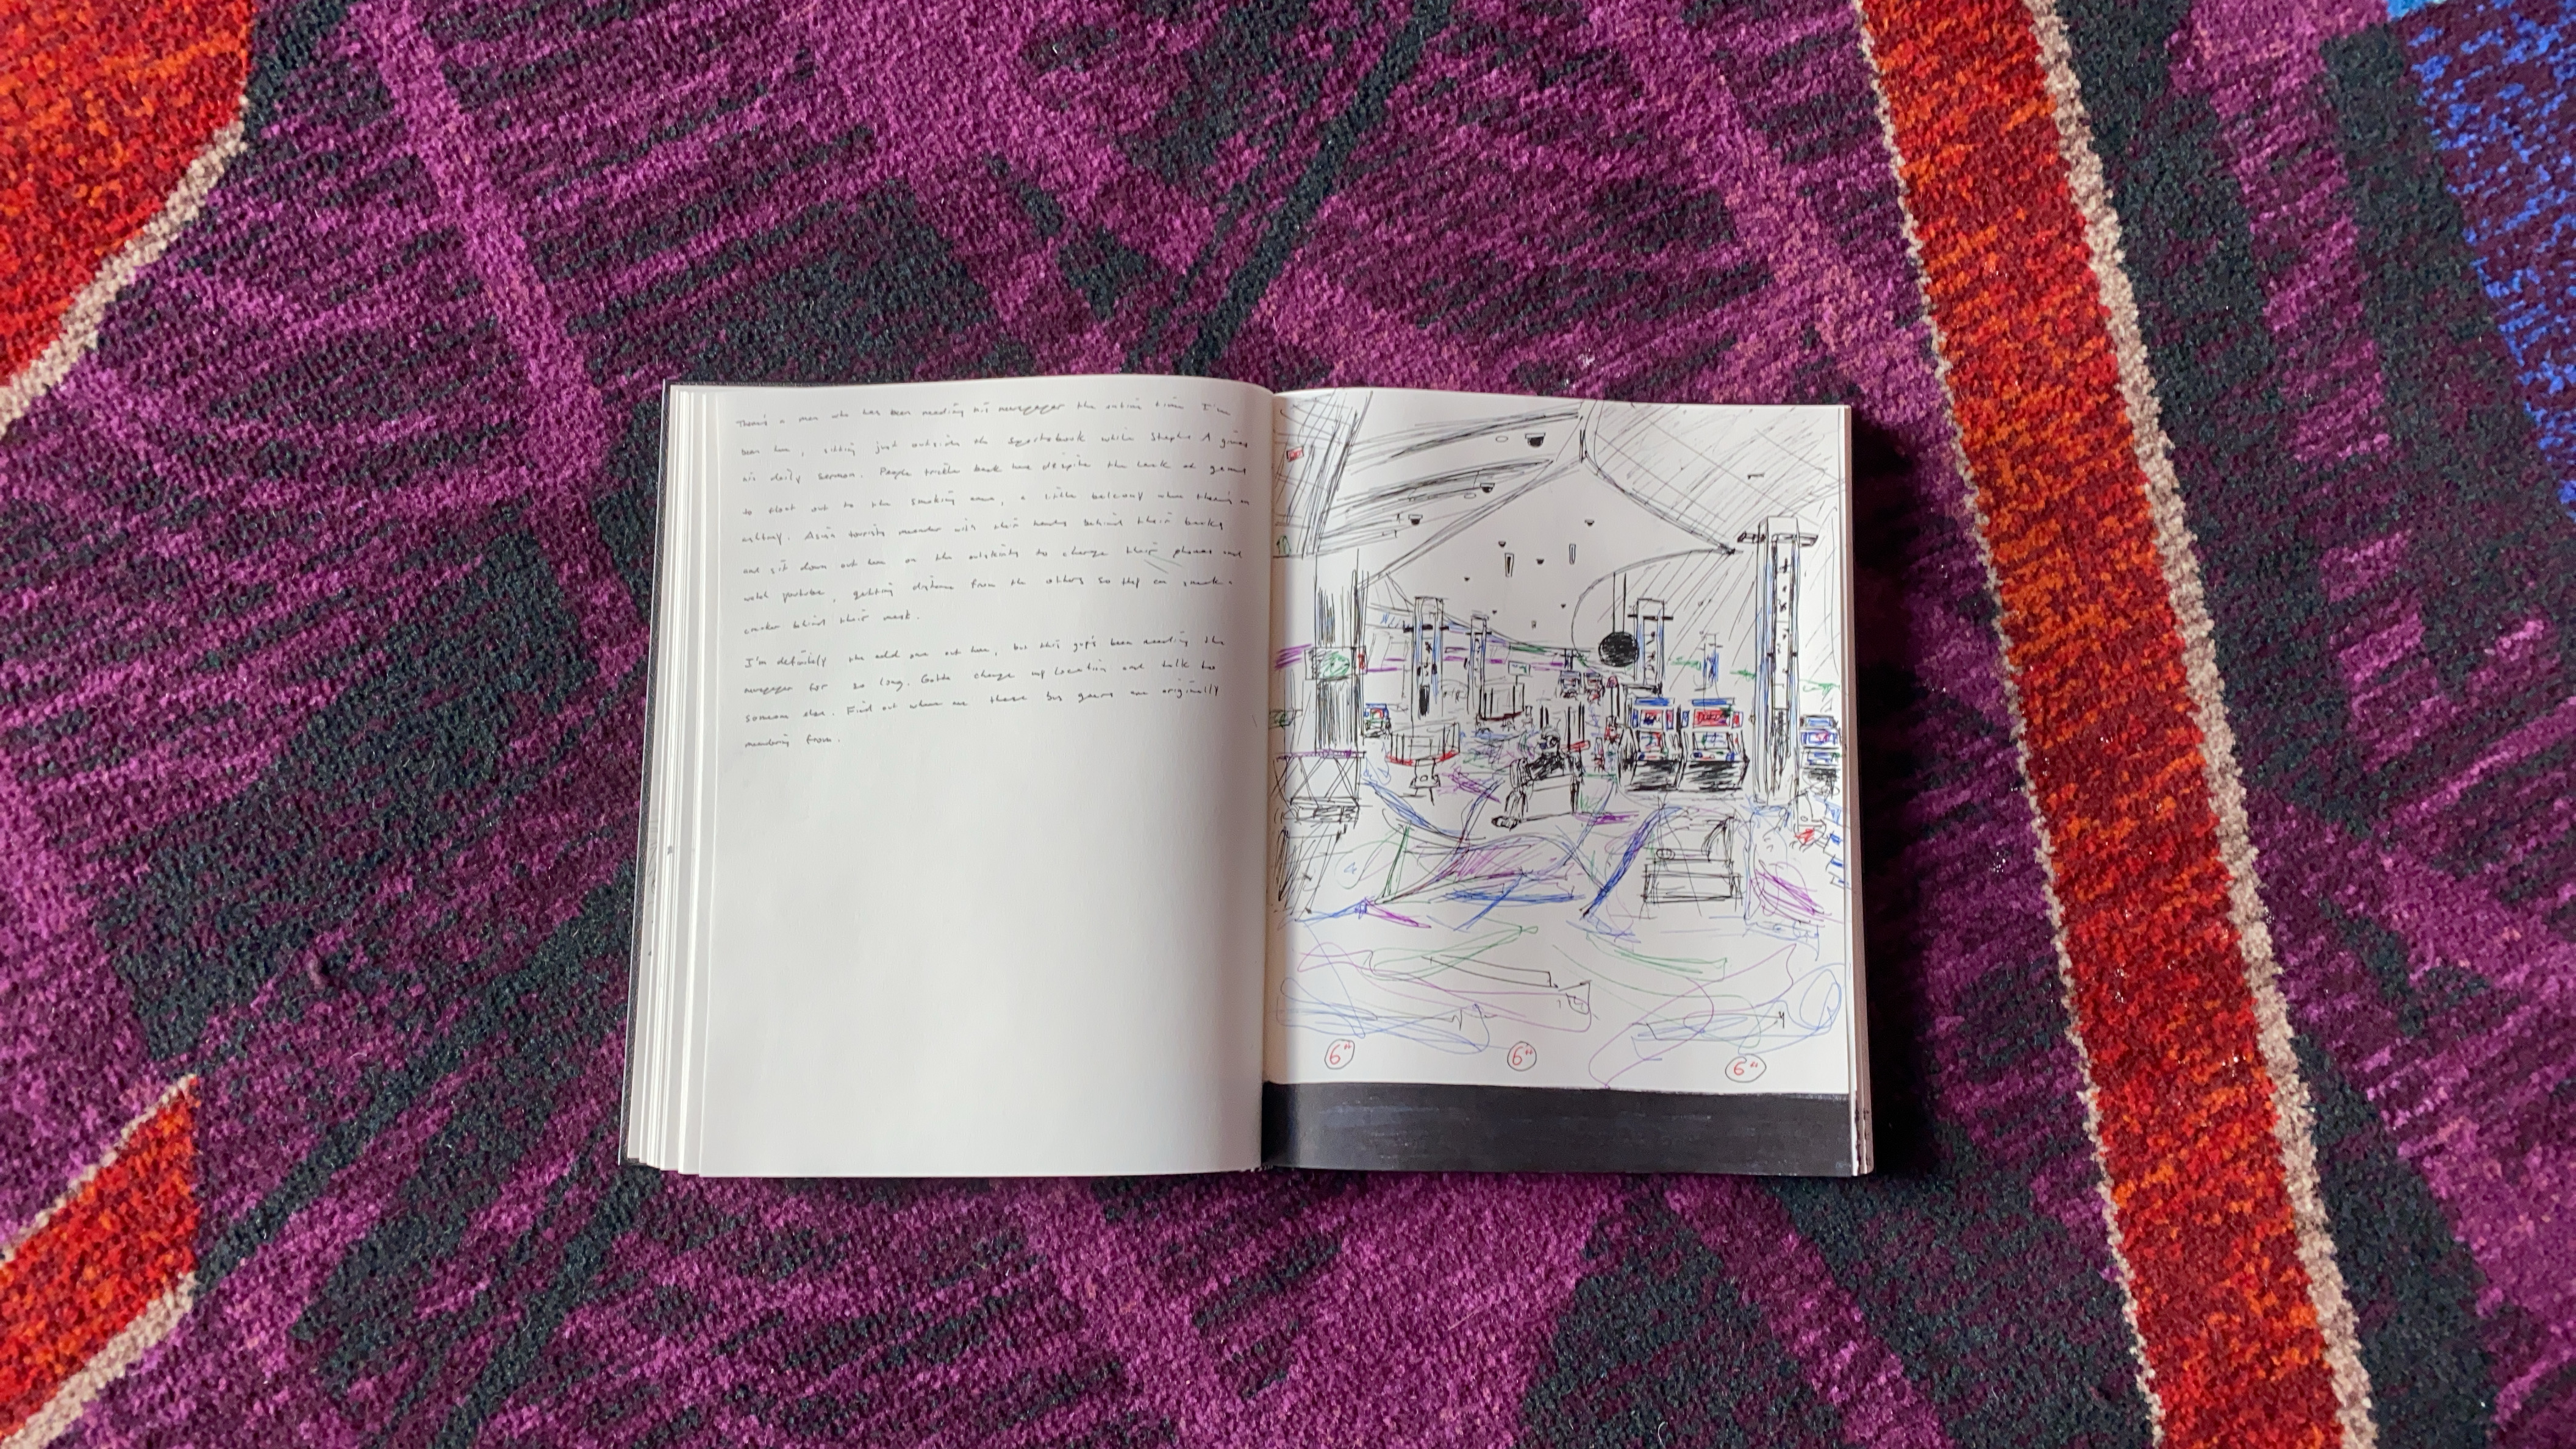 There's a man who has been reading his newspaper the entire time I'm
been here, sitting just outside the sportsbook while Stephen A gives
his daily sermon. People trickle back here despite the lack of games
to float out to the smoking area, a little balcony where there's an
ashtray. Asian tourists meander with their hands behind their backs
and sit down out here on the outskirts to charge their phones and
watch youtube, getting distance from the others so they can sneak a
cracker behind their mask.
I'm definitely the odd one out here, but this guy's been reading the
newspaper for so long. Gotta change my location and talk to
someone else. Find out where are these bus goers are originally
meandering from.
6"
6"
6"